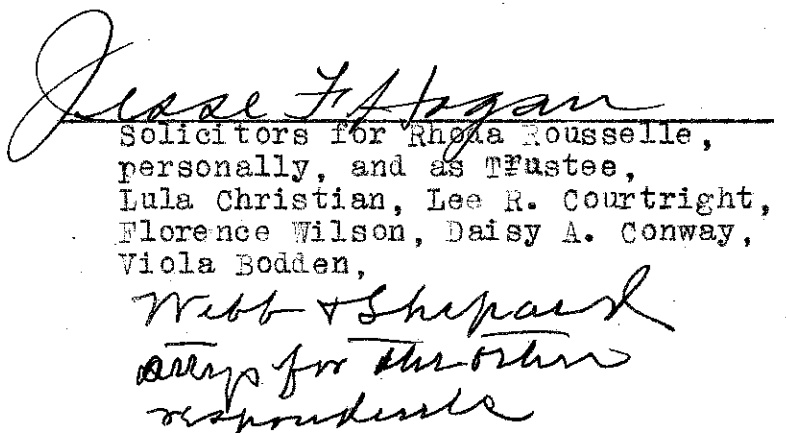 Jesse F. Hogan
Solicitors for Rhoda Rousselle,
personally, and as Trustee,
Lula Christian, Lee R. Courtright,
Florence Wilson, Daisy A. Conway,
Viola Bodden,
Webb & Shepard
attys for the other
respondents